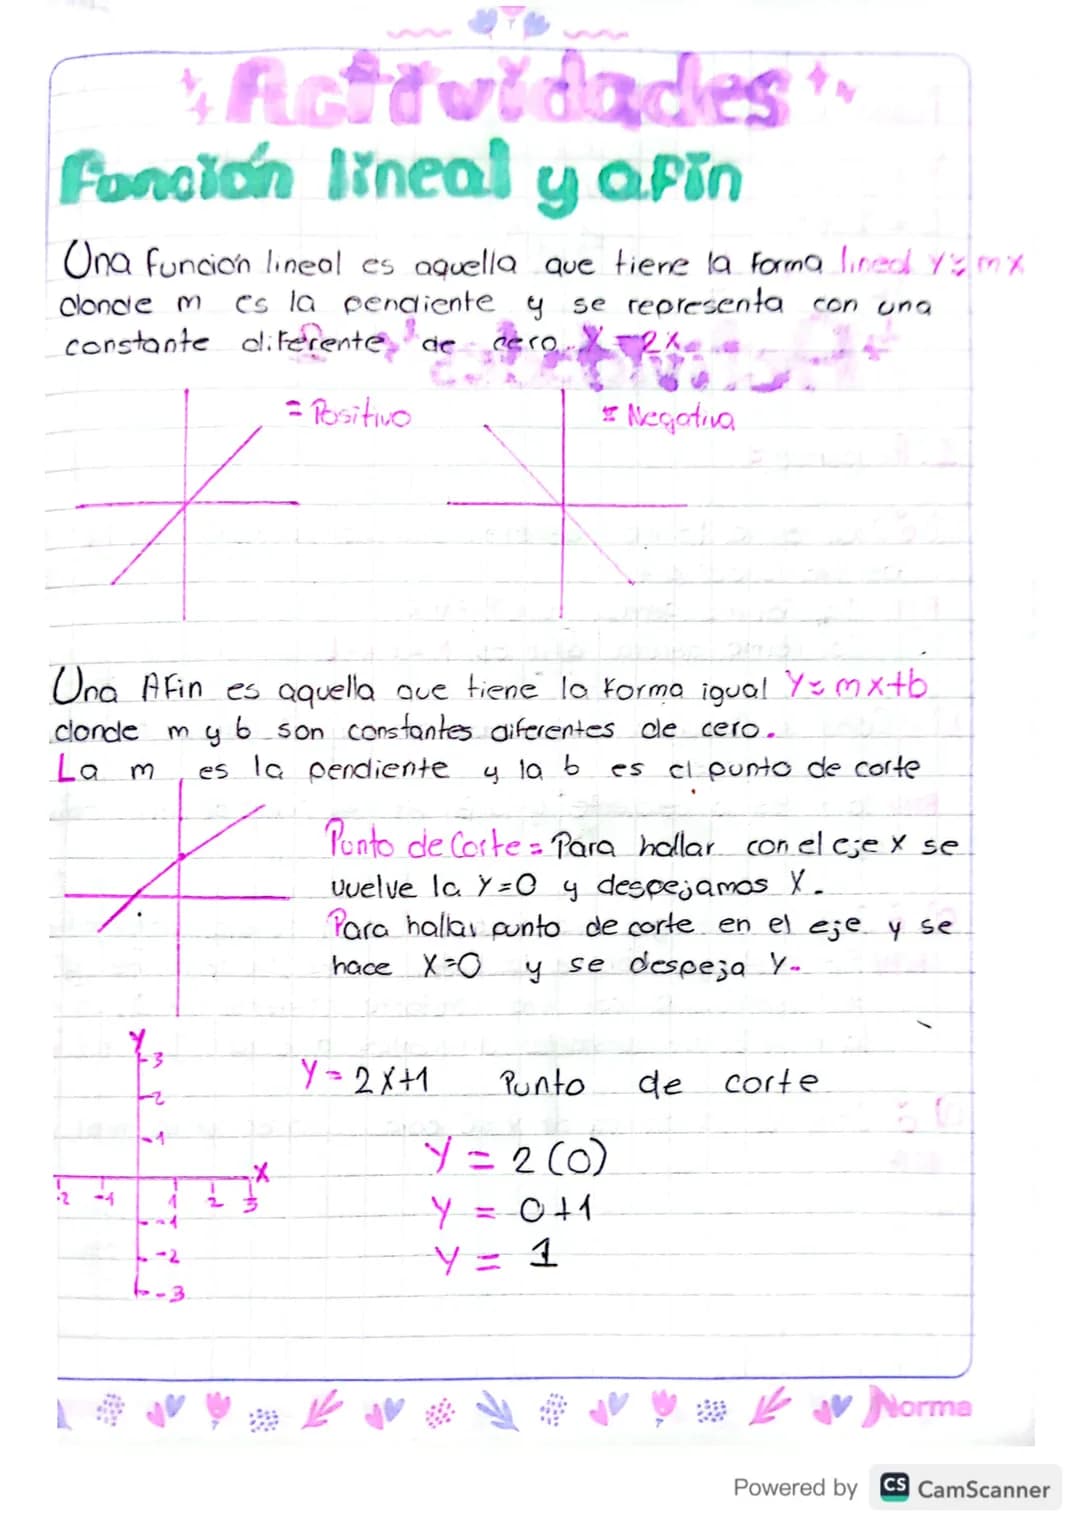 Actividades
Función lineal y afín
Una función lineal es aquella que tiene la forma lineal y=mx
donde m es la pendiente y se representa con una
constante diferente de cero. X=2x
= Positivo
= Negativa
Una Afin es aquella que tiene la forma igual Y=mx+b
donde m y b son constantes diferentes de cero.
La m es la pendiente y la b es el punto de corte
Punto de Corte = Para hallar con el eje X se
vuelve la Y=0 y despejamos X.
Para hallar punto de corte en el eje y se
hace X=0 y se despeja Y.
Y
3
2
1
X
-2 -1 1 2 3
-1
-2
-3
Y = 2X+1 Punto de corte
Y = 2(0)
Y = 0+1
Y = 1
Norma
Powered by CS CamScanner